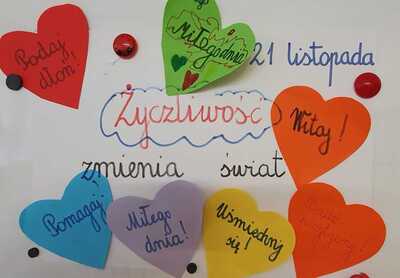 Podaj
dłoń!
Miłego dnia
21 listopada
Życzliwość
Witaj!
zmienia świat
Pomagaj!
Miłego
dnia!
Uśmiechnij
się!